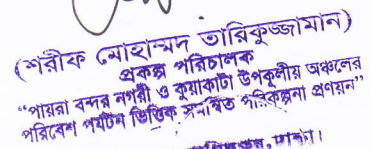 (শরীফ মোহাম্মদ তারিকুজ্জামান)
প্রকল্প পরিচালক
“পায়রা বন্দর নগরী ও কুয়াকাটা উপকূলীয় অঞ্চলের
পরিবেশ পর্যটন ভিত্তিক সমন্বিত পরিকল্পনা প্রণয়ন”
ঢাকা।